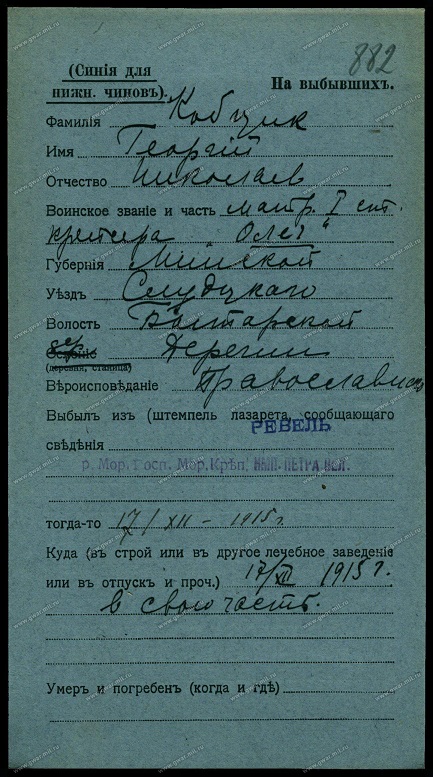 882
(Синія для
нижн. чиновъ).
На выбывшихъ.
Фамилія Кобцик
Имя Георгій
Отчество Николаев
Воинское званіе и часть матр. I ст.
крейсера „Олег“
Губернія Минской
Уѣздъ Слуцкаго
Волость
дер.
Селеніе
(деревня, станица)
Вѣроисповѣданіе Православный
Выбылъ изъ (штемпель лазарета, сообщающаго
РЕВЕЛЬ
свѣдѣнія
р. Мор. Госп. Мор. Крѣп. ИМП. ПЕТРА ВЕЛ.
тогда-то 17/XII – 1915 г.
Куда (въ строй или въ другое лечебное заведеніе
или въ отпускъ и проч.) 17/XII 1915 г.
в свою часть.
Умеръ и погребенъ (когда и гдѣ)
www.gwar.mil.ru